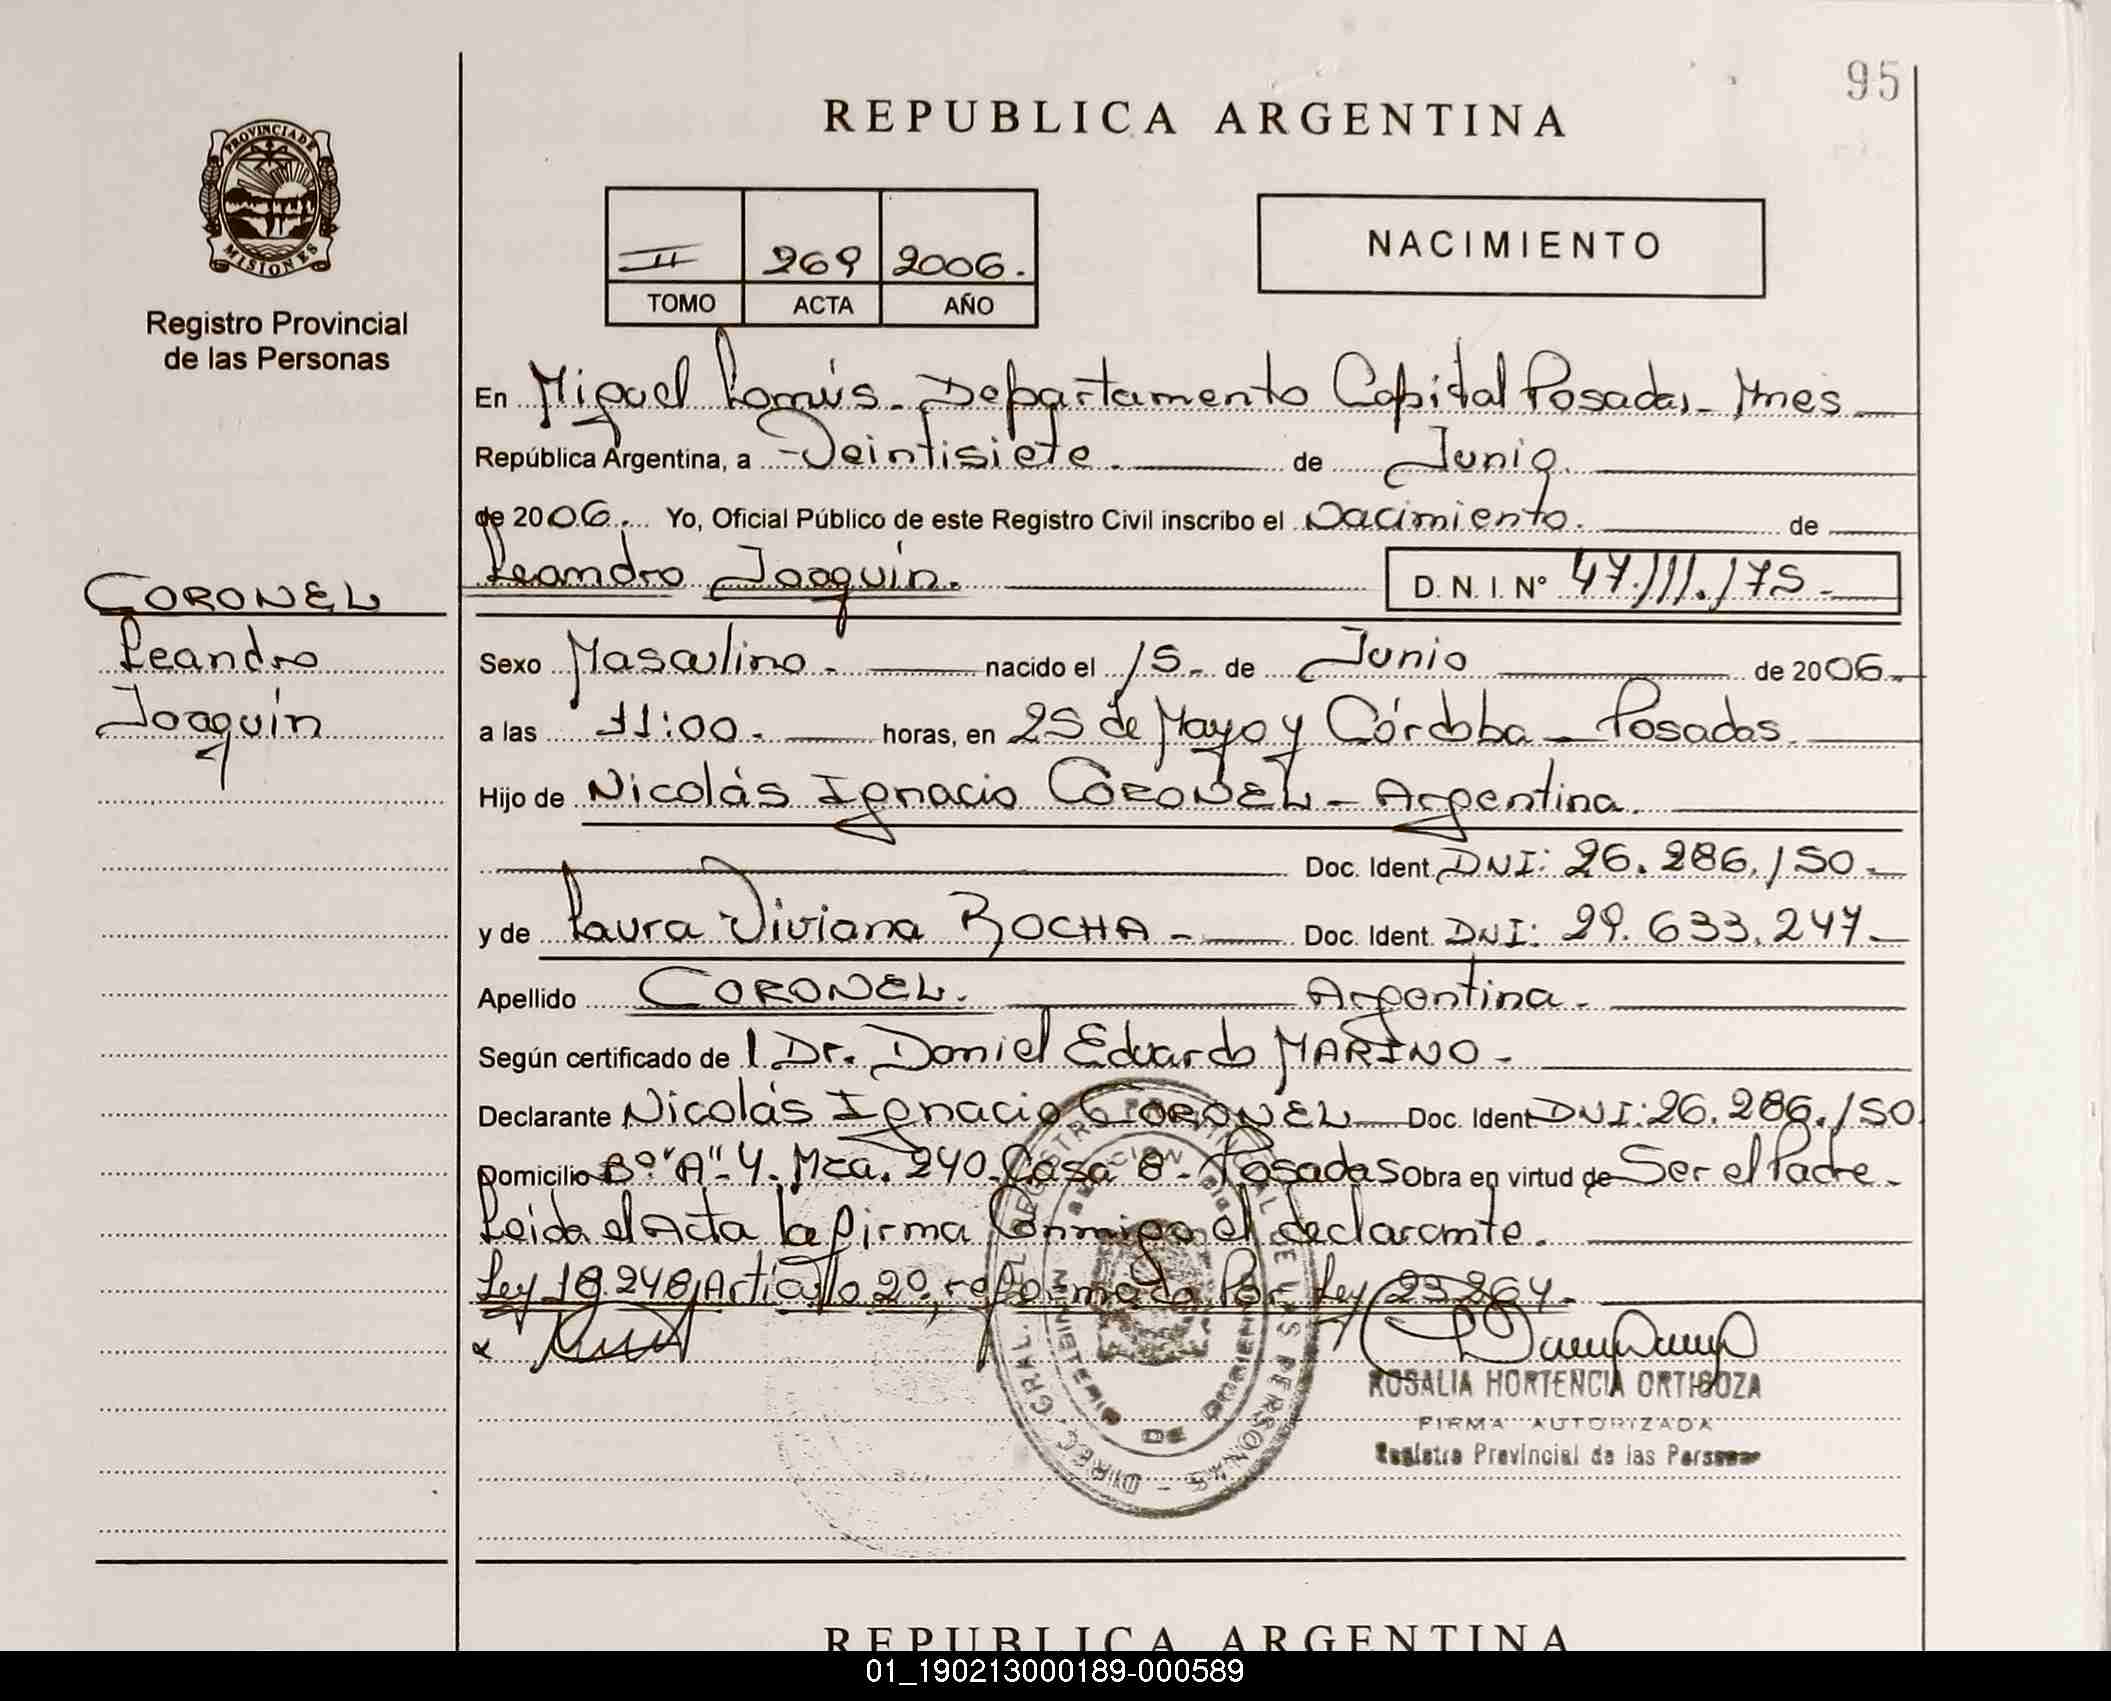 95
REPUBLICA ARGENTINA
PROVINCIA DE
MISIONES
Registro Provincial
de las Personas
II 269 2006.
TOMO ACTA AÑO
NACIMIENTO
En Miguel Lanús - Departamento Capital Posadas - Mnes
República Argentina, a Veintisiete. de Junio.
de 2006. Yo, Oficial Público de este Registro Civil inscribo el Nacimiento. de
Leandro Joaquín. D. N. I. Nº 47.111.175.-
CORONEL
Leandro
Joaquín
Sexo Masculino.- nacido el 15.- de Junio de 2006.-
a las 11:00.- horas, en 25 de Mayo y Córdoba - Posadas.
Hijo de Nicolás Ignacio CORONEL - Argentina.
Doc. Ident. DNI: 26.286.150.-
y de Laura Viviana ROCHA - Doc. Ident. DNI: 29.633.247.-
Apellido CORONEL. Argentina.-
Según certificado de l Dr. Daniel Eduardo MARINO -
Declarante Nicolás Ignacio CORONEL - Doc. Ident DNI: 26.286.150
Domicilio Bº "A"-4. Mza. 240. Casa 8 - Posadas Obra en virtud de Ser el Padre.
Leida el Acta la firma Conmigo el declarante.
Ley 18.248, Artículo 2º, reformado Por Ley 23264.-
x
ROSALIA HORTENCIA ORTIGOZA
FIRMA AUTORIZADA
Registro Provincial de las Personas
DIREC. GRAL. REGISTRO PROVINCIAL DE LAS PERSONAS -
REPUBLICA ARGENTINA
01_190213000189-000589